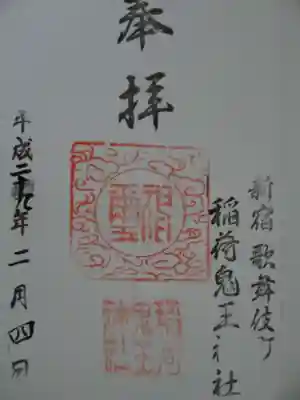 新宿歌舞伎町
稲荷鬼王神社
奉拝
稲荷
鬼王
神社
平成二十九年二月四日